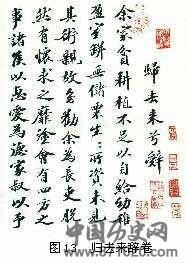 歸去来兮辭
余家貧耕植不足以自給幼稚
盈室缾無儲粟生々所資未見
其術親故多勸余為長吏脫
然有懷求之靡塗會有四方之
事諸侯以惠愛為德家叔以予
中国历史
图 13 归去来辞卷